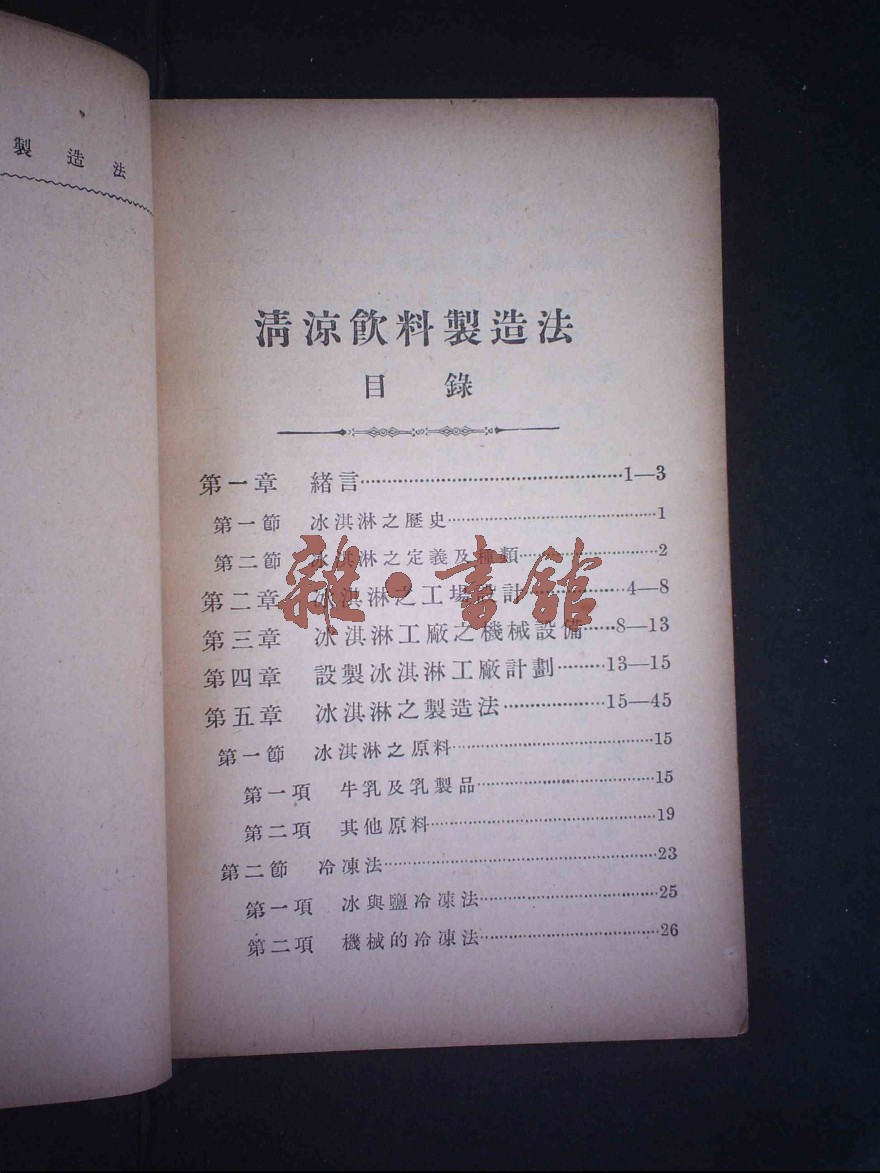 製造法
清涼飲料製造法
目錄
第一章 緒言……1—3
第一節 冰淇淋之歷史……1
第二節 冰淇淋之定義及種類……2
第二章 冰淇淋之工場設計……4—8
第三章 冰淇淋工廠之機械設備……8—13
第四章 設製冰淇淋工廠計劃……13—15
第五章 冰淇淋之製造法……15—45
第一節 冰淇淋之原料……15
第一項 牛乳及乳製品……15
第二項 其他原料……19
第二節 冷凍法……23
第一項 冰與鹽冷凍法……25
第二項 機械的冷凍法……26
雜·書館